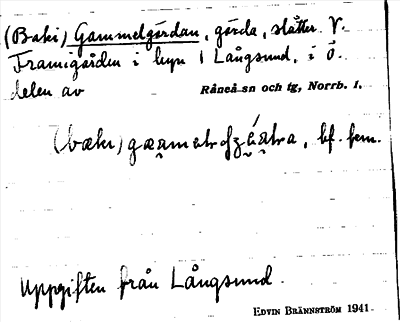 (Baki) Gammelgärdan, gärda, slåtter. V.
Framigården i byn 1 Långsund, i ö.
delen av Råneå sn och tg, Norrb. l.
(bækı), bf. fem.
Uppgiften från Långsund.
EDVIN BRÄNNSTRÖM 1941.